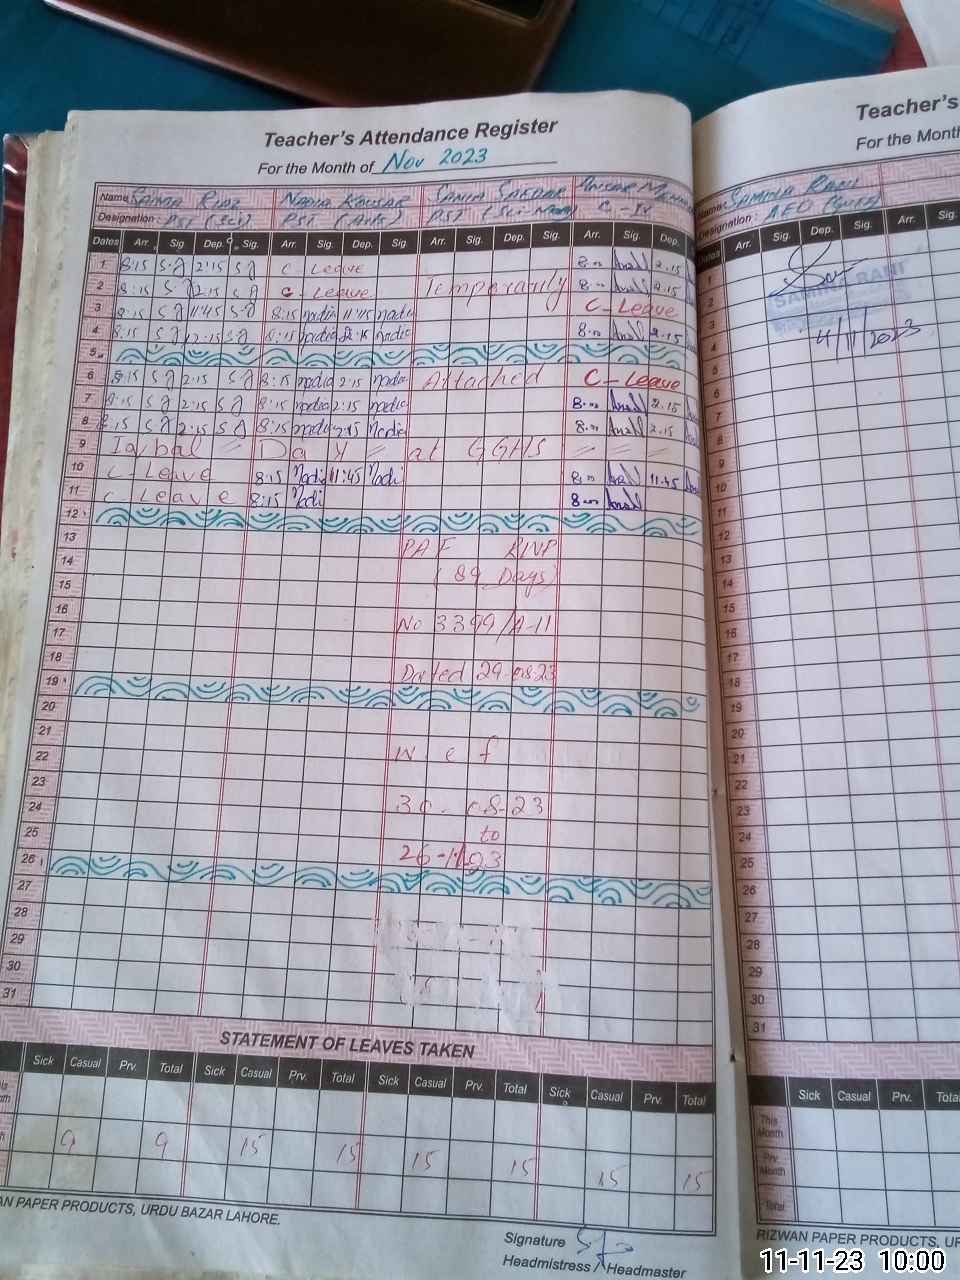 Teacher's Attendance Register
For the Month of Nov 2023
Name: Saima Riaz Nadia Kousar Sania Safdar Ansar
Designation: PST (Sci) PST (Arts) PST (Sci-Math) C-IV
Dates Arr. Sig Dep. Sig. Arr. Sig. Dep. Sig Arr. Sig. Dep. Sig. Arr. Sig. Dep.
1 8:15 SJ 2:15 SJ C-Leave 8:00 2:15
2 8:15 SJ 2:15 SJ C-Leave Temporarily 8:00 2:15
3 8:15 SJ 11:45 SJ 8:15 nadia 11:45 nadia C-Leave
4 8:15 SJ 12:15 SJ 8:15 nadia 2:15 nadia 8:00 2:15
5
6 8:15 SJ 2:15 SJ 8:15 nadia 2:15 nadia Attached C-Leave
7 8:15 SJ 2:15 SJ 8:15 nadia 2:15 nadia 8:00 2:15
8 8:15 SJ 2:15 SJ 8:15 nadia 2:15 nadia 8:00 2:15
9 Iqbal = Day = at GGHS = = =
10 C Leave 8:15 Nadia 11:45 Nadia 8:00 11:45
11 C Leave 8:15 Nadi 8:00
12
13 PAF RWP
14 (89 Days)
15
16 No 3399/A-11
17
18 Dated 29-08-23
19
20
21 W e f
22
23 30-08-23
24 to
25 26-11-23
26
27
28
29
30
31
STATEMENT OF LEAVES TAKEN
Sick Casual Prv. Total Sick Casual Prv. Total Sick Casual Prv. Total Sick Casual Prv. Total
9 9 15 15 15 15 15 15
PAPER PRODUCTS, URDU BAZAR LAHORE.
Signature
Headmistress / Headmaster
Teacher's
For the Month
Name: Samina Rani
Designation: AEO
Dates Arr. Sig. Dep. Sig. Arr. Sig.
1
2 SAMINA RANI
3
4 4/11/2023
5
6
7
8
9
10
11
12
13
14
15
16
17
18
19
20
21
22
23
24
25
26
27
28
29
30
31
Sick Casual Prv. Total
This Month
Prv. Month
Total
RIZWAN PAPER PRODUCTS,
11-11-23 10:00